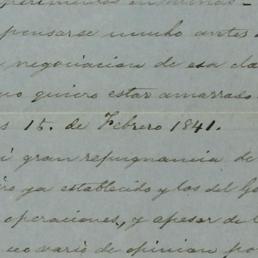 perimentos en minas -
pensarse mucho antes
negociacion de esa cla
no quiero estar amarrado
s 15. de Febrero 1841.
i gran repugnancia de
ya establecido y los del Go
operaciones, y apesar de
no varió de opinion po